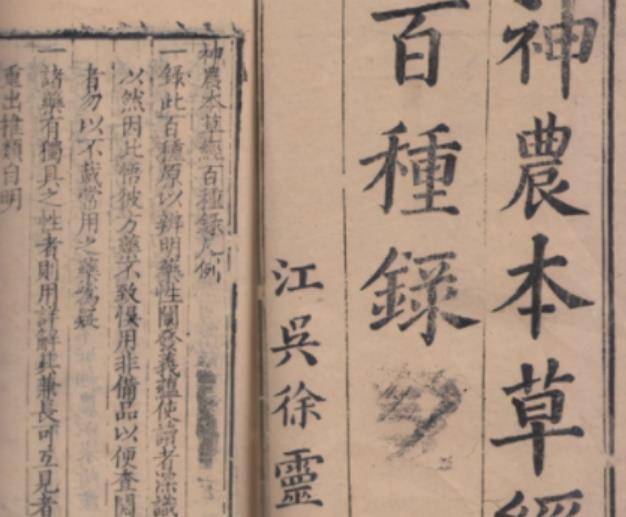 神農本草經
百種錄
江吳徐靈
神農本草經百種錄凡例
一錄此百種原以辨明藥性闡發義蘊使讀者深識
以然因此悟彼方藥不致悞用非備品以便查閱
者勿以不載常用之藥為疑
一諸藥有獨具之性者則用詳解其兼長可互見者
重出推類自明